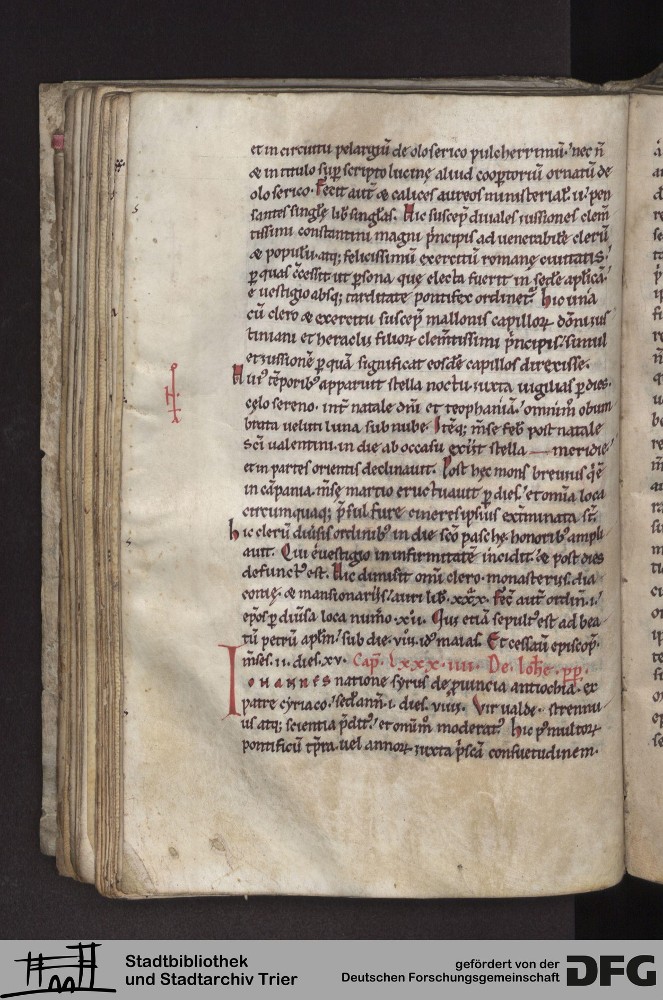 et in circuitu pelargiū de oloserico pulcherrimū. nec ñ
& in titulo sup̄ scripto lucinę aliud coop̄toriū ornatū de
olo serico. Fecit aut̄ & calices aureos ministerial. ii. pen
santes singlę lib̄ singlas. Hic suscep̄ diuales iussiones clem̄
tissimi constantini magni p̄ncipis ad uenerabilē clerū
& populū. atq; felicissimū exercitū romanę ciuitatis.
p̄ quas c̄cessit ut p̄sona quę electa fuerit in sedē ap̄licā.
e uestigio absq; tarditate pontifex ordinet̄. Hic una
cū clero & exercitu suscep̄ mallonis capilloꝝ dōni ius
tiniani et heraclii filioꝝ clem̄tissimi p̄ncipis. simul
et iussionē p̄ quā significat eosdē capillos direxisse.
Huiꝰ tēporibꝰ apparuit stella noctu iuxta uigilias p̄ dies
cęlo sereno. int̄ natale dn̄i et teophaniā. omnim̄ obum
brata ueluti luna sub nube. Itēq; m̄se feb̄ post natale
sc̄i ualentini. in die ab occasu exiit stella — meridie.
et in partes orientis declinauit. Post hęc mons
in cāpania. m̄se martio eructuauit p̄ dies. et om̄ia loca
circumquaq; p̄ sulfure cineres ipsius ext̄minata st̄.
Hic clerū diūsis ordinibꝰ in die sc̄o paschę honoribꝰ ampli
auit. Qui euestigio in infirmitatē incidit. & post dies
defunctꝰ est. Hic dimisit om̄i clero. monasteriis. dia
conię. & mansionariis. auri lib̄. xxx. Fec̄ aut̄ ordin̄. i.
ep̄os p̄ diūsa loca num̄o. xii. Qui etiā sepultꝰ est ad bea
tū petrū ap̄lm̄. sub die. viii. idꝰ maias. Et cessauit episcop̄.
m̄ses. ii. dies. xv. Cap̄. Lxxx.iiii. De. Ioh̄e. pp̄.
Iohannes natione syrus de p̄uincia antiochia. ex
patre cyriaco. sed̄ ann̄. i. dies. viiii. Vir ualde. strennu
us atq; scientia p̄ditꝰ. et om̄im̄ moderatꝰ. Hic p̄ multoꝝ
pontificū tp̄ra. uel annoꝝ iuxta p̄scā consuetudinem.
Stadtbibliothek
und Stadtarchiv Trier
gefördert von der
Deutschen Forschungsgemeinschaft
DFG